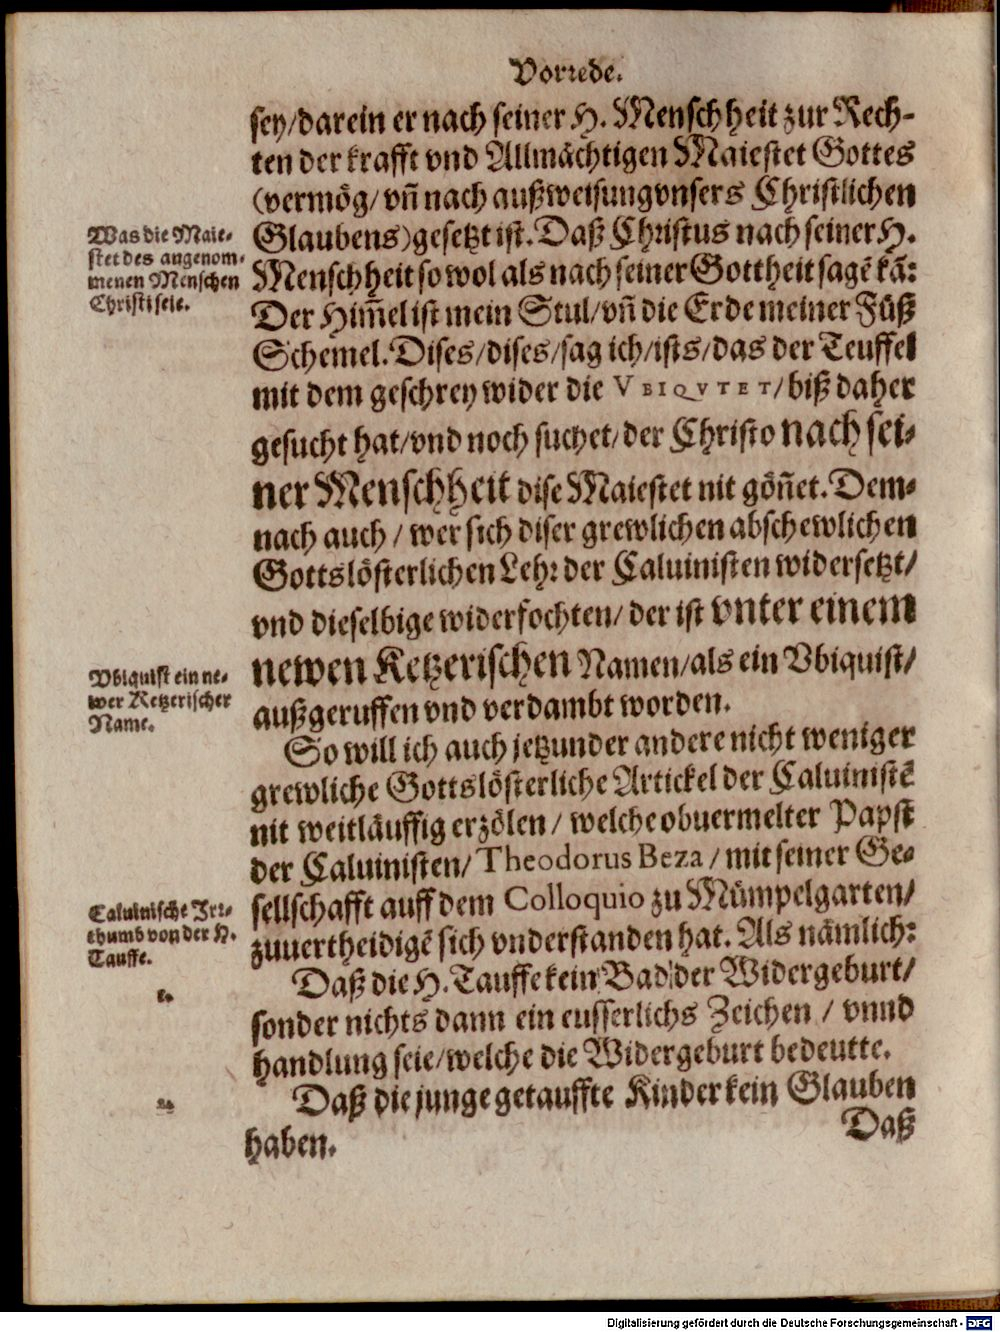 Vorrede.
sey/darein er nach seiner H. Menschheit zur Rech-
ten der krafft vnd Allmächtigen Maiestet Gottes
(vermög/vn̄ nach außweisung vnsers Christlichen
Glaubens) gesetzt ist. Daß Christus nach seiner H.
Menschheit so wol als nach seiner Gottheit sagē kā:
Der Him̄el ist mein Stul/vn̄ die Erde meiner Füß
Schemel. Dises/dises/sag ich/ists/das der Teuffel
mit dem geschrey wider die VBIQVTET/biß daher
gesucht hat/vnd noch suchet/der Christo nach sei-
ner Menschheit dise Maiestet nit gön̄et. Dem-
nach auch/wer sich diser grewlichen abschewlichen
Gottslösterlichen Lehr der Caluinisten widersetzt/
vnd dieselbige widerfochten/der ist vnter einem
newen Ketzerischen Namen/als ein Vbiquist/
außgeruffen vnd verdambt worden.
So will ich auch jetzunder andere nicht weniger
grewliche Gottslösterliche Artickel der Caluinistē
nit weitläuffig erzölen/welche obuermelter Papst
der Caluinisten/Theodorus Beza/mit seiner Ge-
sellschafft auff dem Colloquio zu Mümpelgarten/
zuuertheidigē sich vnderstanden hat. Als nämlich:
Daß die H. Tauffe kein Bad der Widergeburt/
sonder nichts dann ein eusserlichs Zeichen/vnnd
handlung seie/welche die Widergeburt bedeutte.
Daß die junge getauffte Kinder kein Glauben
haben.
Daß
Was die Maie-
stet des angenom-
menen Menschen
Christi seie.
Vbiquist ein ne-
wer Ketzerischer
Name.
Caluinische Irr-
thumb von der H.
Tauffe.
1.
2.
Digitalisierung gefördert durch die Deutsche Forschungsgemeinschaft - DFG